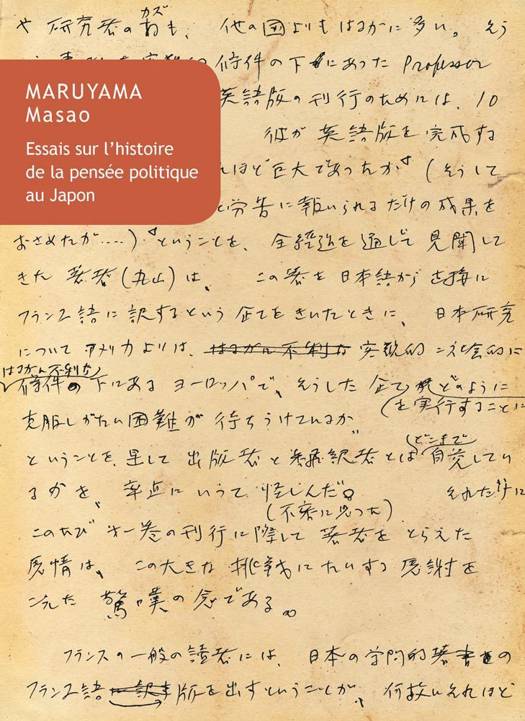 カズ
や研究者の も、他の国よりもはるかに多い。そう
条件の下にあった Professor
MARUYAMA
Masao
Essais sur l’histoire
de la pensée politique
au Japon
英語版の刊行のためには、10
彼が英語版を完成する
れほど巨大であったか（そうして
と労苦に報いられるだけの成果を
おさめたが‥‥）ということを、全経過を通じて見聞して
きた著者（丸山）は、この書を日本語から直接に
フランス語に訳するという企てをきいたときに、日本研究
についてアメリカよりは、はるかに不利な 実質的
はるかに不利な
条件の下にあるヨーロッパで、そうした企て どのように
（を実行することに
克服しがたい困難が待ちうけているか
（どこまで
ということを、果して出版者と 訳者とは自覚してい
るかを、率直にいって怪しんだ。それだけに
（不審に思った）
このたび第一巻の刊行に際して著者をとらえた
感情は、この大きな挑戦にたいする感謝を
こえた驚嘆の念である。
フランスの一般の読者には、日本の学問的著書の
フランス語 版を出すということが、何故 それほど